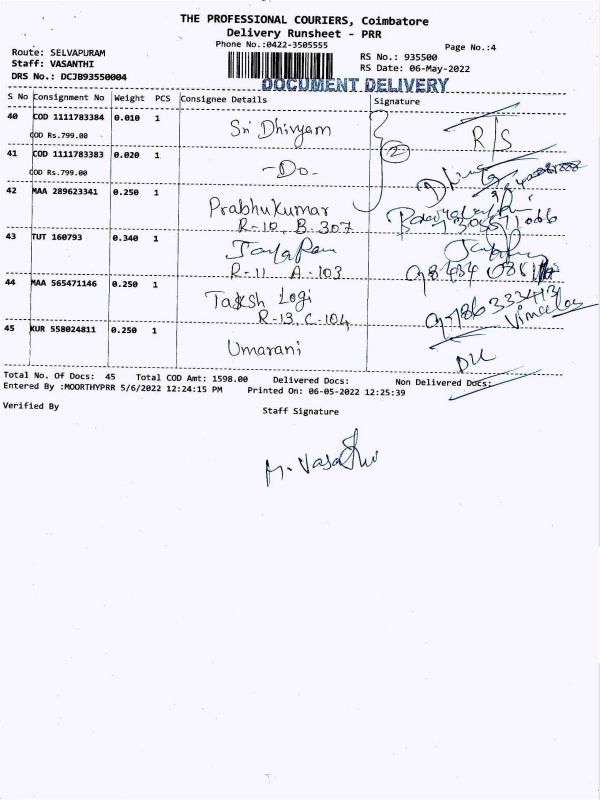 THE PROFESSIONAL COURIERS, Coimbatore
Delivery Runsheet - PRR
Phone No.:0422-3505555
Page No.:4
Route: SELVAPURAM
RS No.: 935500
Staff: VASANTHI
RS Date: 06-May-2022
DRS No.: DCJB93550004
DOCUMENT DELIVERY
S No Consignment No Weight PCS Consignee Details Signature
40 COD 1111783384 0.010 1 Sri Dhivyam R/S
COD Rs.799.00
41 COD 1111783383 0.020 1 -Do- 2
COD Rs.799.00
42 MAA 289623341 0.250 1 Prabhu Kumar
R-10, B-307
43 TUT 160793 0.340 1 Jayaram
R-11 A-103
44 MAA 565471146 0.250 1 Taksh Logi
R-13, C-104
45 KUR 558024811 0.250 1 Umarani
Total No. Of Docs: 45 Total COD Amt: 1598.00 Delivered Docs: Non Delivered Docs:
Entered By :MOORTHYPRR 5/6/2022 12:24:15 PM Printed On: 06-05-2022 12:25:39
Verified By
Staff Signature
M. Vasanthi